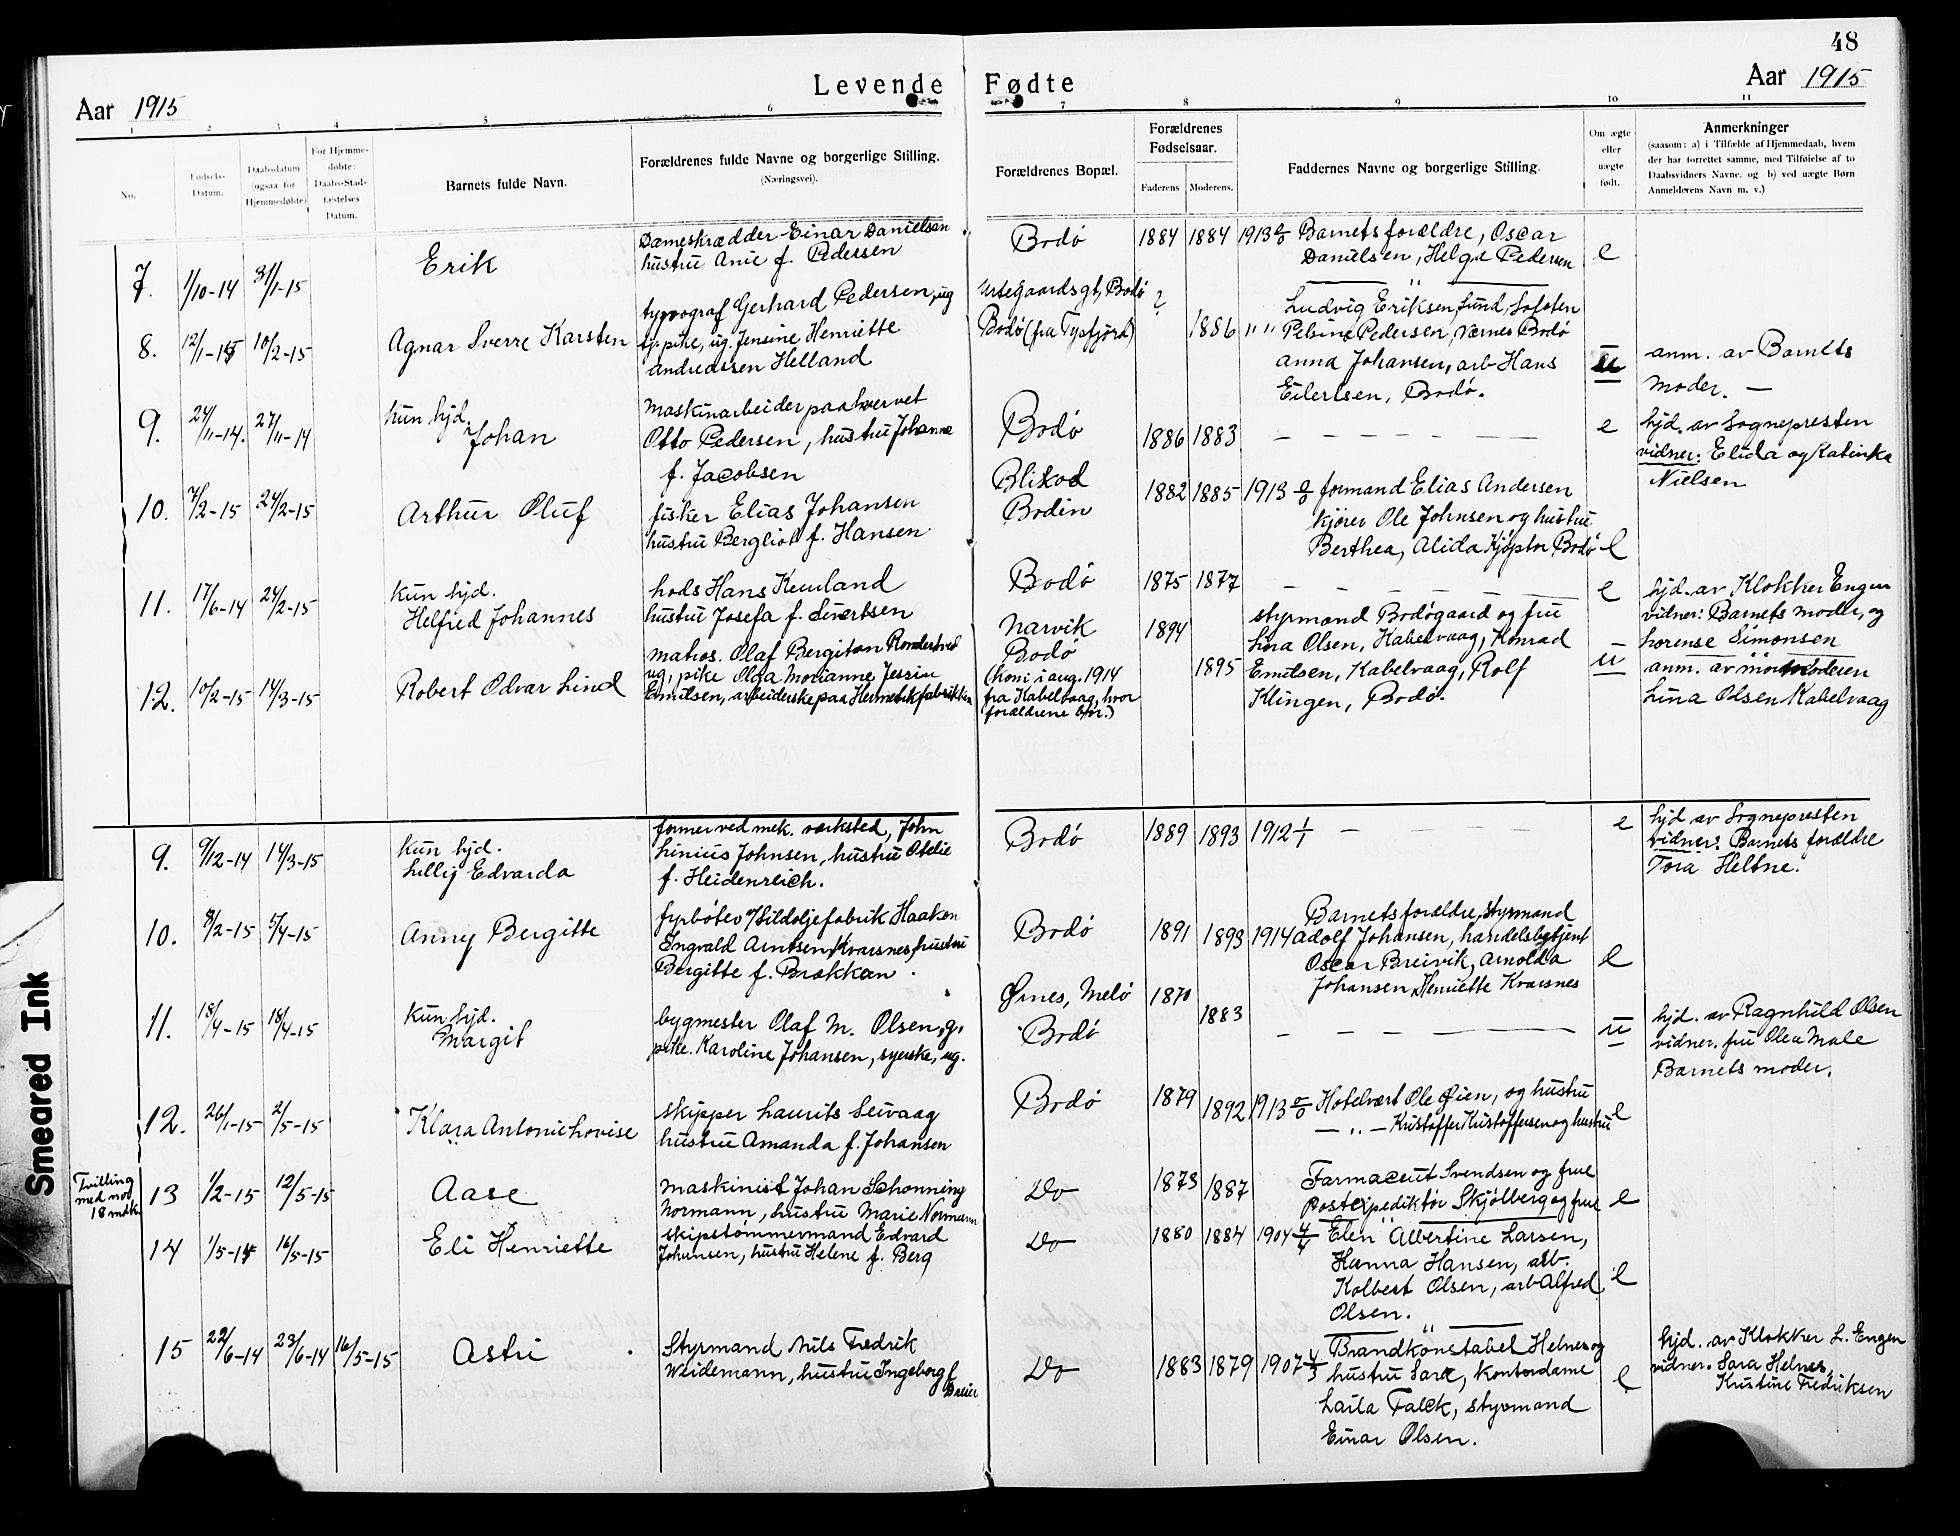 48
Levende Fødte
Aar 1915
Aar 1915
1 2 3 4 5 6 7 8 9 10 11
No.
Fødsels-
Datum.
Daabsdatum
(ogsaa for
Hjemmedøbte)
For Hjemme-
døbte:
Daabs-Stad-
fæstelses
Datum.
Barnets fulde Navn.
Forældrenes fulde Navne og borgerlige Stilling.
(Næringsvei).
Forældrenes Bopæl.
Forældrenes
Fødselsaar.
Faderens
Moderens.
Faddernes Navne og borgerlige Stilling.
Om ægte
eller
uægte
født.
Anmerkninger
(saasom: a) i Tilfælde af Hjemmedaab, hvem
der har forrettet samme, med Tilføielse af to
Daabsvidners Navne. og b) ved uægte Børn
Anmelderens Navn m. v.)
7. 1/10-14 31/1-15
Erik
Dameskrædder Einar Danielsen
hustru Anie f. Pedersen
Bodø
1884 1884
1913 Barnets forældre, Oscar
Danielsen, Helga Pedersen
e
8. 12/1-15 10/2-15
Agnar Sverre Karsten
typograf Gerhard Pedersen, ug
tj. pike, ug. Jensine Henriette
Andreassen Helland
Urtegaardsgt, Bodø
Bodø (fra Tysfjord)
? 1886
Ludvig Eriksen Sund, Lofoten
" " Petrine Pedersen, Værnes Bodø
Anna Johansen, arb Hans
Eilertsen, Bodø.
u
anm. av Barnets
moder. —
9. 24/11-14. 27/11-14
kun hjd.
Johan
Maskinarbeider paa hvervet
Otto Pedersen, hustru Johanna
f. Jacobsen
Bodø
1886 1883
— — — — — —
e
hjd. av Sognepresten
vidner: Elida og Katinka
Nielsen
10. 7/2-15 24/2-15
Arthur Oluf
fisker Elias Johansen
hustru Bergliot f. Hansen
Blikod
Bodin
1882 1885
1913 formand Elias Andersen
kjører Ole Johnsen og hustru
Berthea, Alida Kjøpstø Bodø
e
11. 17/6-14 24/2-15
kun hjd.
Helfred Johannes
hods Hans Kuuland
hustru Josefa f. Sivertsen
Bodø
1875 1877
— — — — —
e
hjd. av Klokker Engen
vidner: Barnets moder, og
horense Simonsen
12. 10/2-15 14/3-15
Robert Odvar Lind
matros. Olaf Bergiton Rondestved
ug, pike Olga Marianne Jessin
Emilsen, arbeiderske paa Hermetikfabrikken
Narvik
Bodø
(kom i aug. 1914
fra Kabelvaag, hvor
forældrene bor.)
1894 1895
styrmand Bodøgaard og fru
Lina Olsen, Kabelvaag, Konrad
Emilsen, Kabelvaag, Rolf
Klingen, Bodø.
u
anm. av mormoderen
Lina Olsen Kabelvaag
9. 9/12-14 14/3-15
kun hjd.
Lilly Edvarda
former ved mek. værksted, John
Linius Johnsen, hustru Otelie
f. Heidenreich.
Bodø
1889 1893 1912 1/1 — — — —
e
hjd av Sognepresten
vidner: Barnets forældre
Tora Heltne.
10. 8/2-15 5/4-15
Anny Bergitte
fyrbøter v/ Sildoljefabrik Haakon
Ingvald Arntsen Kvarsnes, hustru
Bergitte f. Brækkan.
Bodø
1891 1893 1914
Barnets forældre, styrmand
Adolf Johansen, handelsbetjent
Oscar Breivik, Arnolda
Johansen, Henriette Kvarsnes
e
11. 18/4-15 18/4-15
Kun hjd.
Margit
bygmester Olaf M. Olsen, g,
pike. Karoline Johansen, syerske, ug.
Ørnes, Melø
Bodø
1870 1883
— — — — —
u
hjd. av Ragnhild Olsen
vidner. fru Olea Male
Barnets moder.
12. 26/1-15 2/5-15
Klara Antonie Lovise
skipper Laurits Seivaag
hustru Amanda f. Johansen
Bodø
1879 1892
1913 Hotelvært Ole Øien, og hustru
— " — Kristoffer Kristoffersen og hustru
e
Tvilling
med no
18 mdk.
13 1/2-15 12/5-15
Aase
Maskinist Johan Schønning
Normann, hustru Marie Normann
Do
1873 1887
Farmaceut Svendsen og frue
Postexpeditør Skjølberg og frue
e
14 1/5-14 16/5-15
Eli Henriette
skipstømmermand Edvard
Johansen, hustru Helene f. Berg
Do
1880 1884
1904 4/4 Elen Albertine Larsen,
Hanna Hansen, arb.
Kolbert Olsen, arb Alfred
Olsen.
e
15 22/6-14 23/6-14 16/5-15
Astri
Styrmand Nils Fredrik
Weidemann, hustru Ingeborg f
Breier
Do
1883 1879
1907 Brandkonstabel Helnes og
hustru Sara, Kontordame
Laila Falck, styrmand
Einar Olsen.
e
hjd. av Klokker L. Engen
vidner. Sara Helnes,
Kristine Fredriksen
Smeared Ink